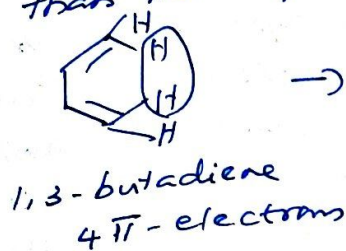 than
H
H
H
H
→
1,3-butadiene
4 π-electrons